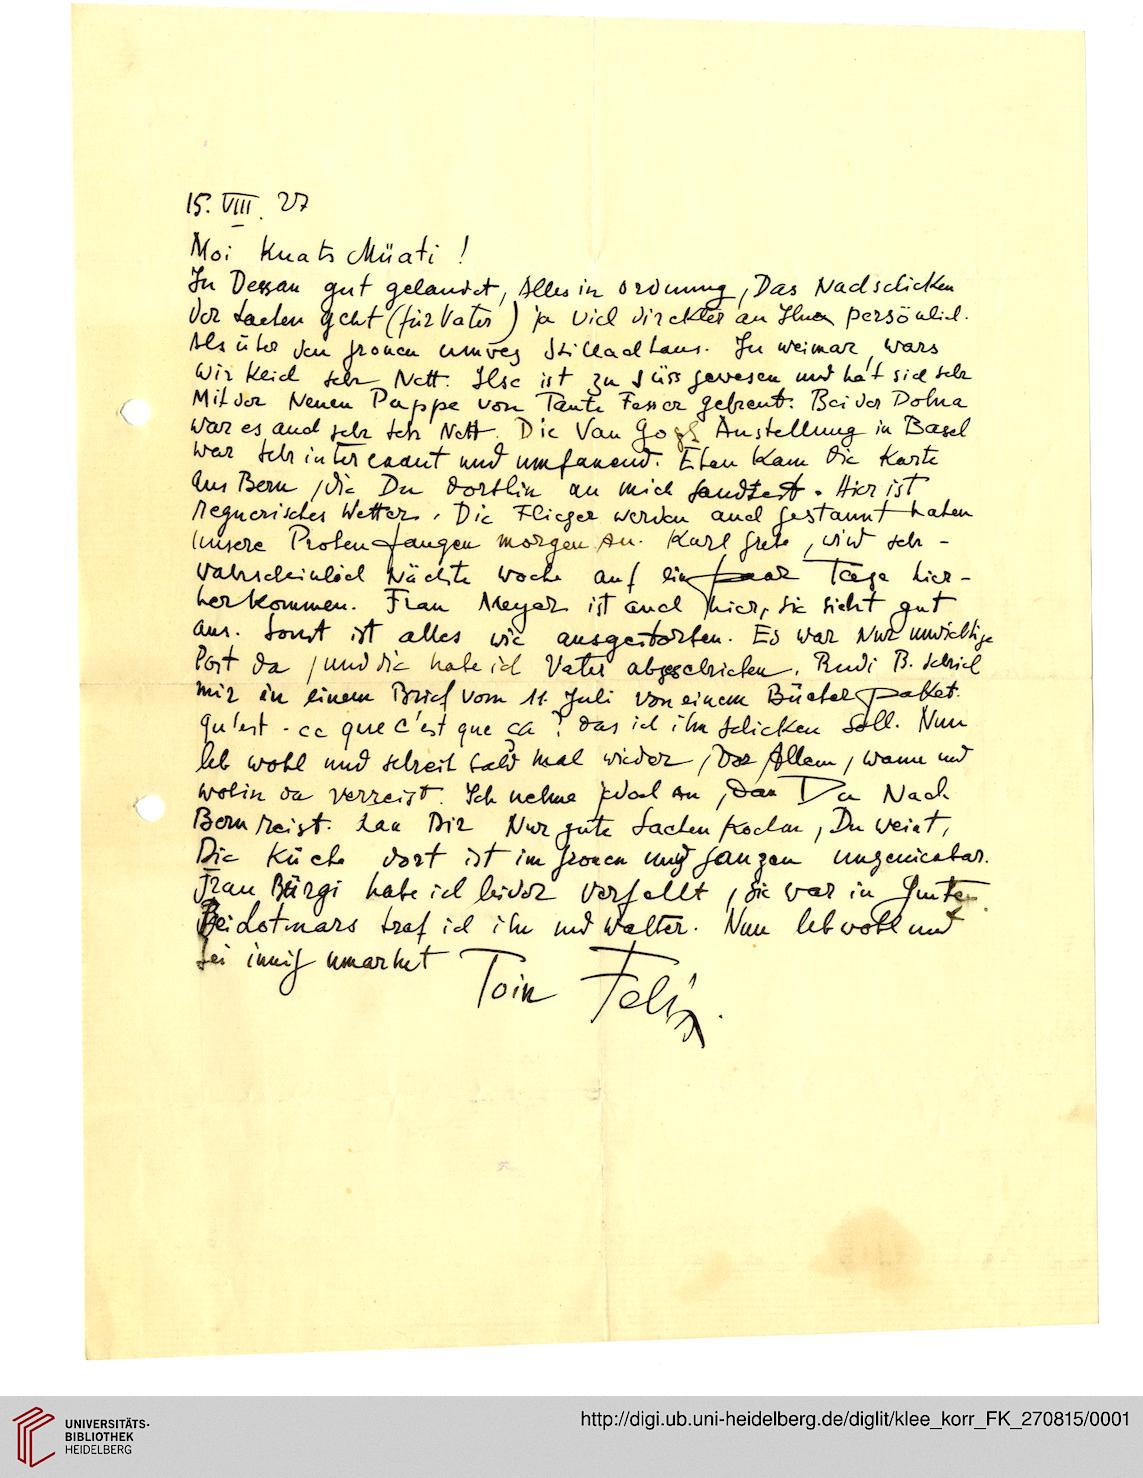 15. VIII. 27
Moi Knats Müati !
In Dessau gut gelandet, Alles in Ordnung, Das Nachschicken
der Sachen geht (für Vater) ja viel direkter an Ihn persönlich.
Als über den grossen umweg Haus. In weimar wars
wir Kleid sehr Nett. Ilse ist zu süss gewesen und hat sich sehr
Mit der Neuen Puppe von Tante gefreut. Bei der Dohna
War es auch sehr sehr Nett. Die Van Gogh Austellung in Basel
war sehr interessant und umfassend. Eben Kam die Karte
Aus Bern, die Du dorthin an mich sandtest. Hier ist
Regnerisches Wetter. Die Flieger werden auch gestaunt haben
Unsere Proben fangen morgen An. Karl Grete, wird sehr -
wahrscheinlich Nächste woche auf ein paar Tage hier-
herkommen. Frau Meyer ist auch hier, sie sieht gut
aus. Sonst ist alles wie ausgestorben. Es war Nur unwichtige
Post da, und die habe ich Vater abgeschrieben. Rudi B. schrieb
mir in einem Brief vom 11. Juli von einem Bücherpaket.
qu'est - ce que c'est que ça ? das ich ihm schicken soll. Nun
leb wohl und schreib bald mal wieder, Vor Allem, wann und
wohin du verreist. Ich nehme jedoch An, dass Du Nach
Bern reist. Lass Dir Nur gute Sachen kochen, Du weisst,
Die Küche dort ist im grossen und ganzen ungeniessbar.
Frau Bürgi habe ich leider verfehlt, sie war in Gunten.
Bei Lotmars traf ich ihn und Walter. Nun leb wohl und
sei innig umarmt
Toin Felix.
UNIVERSITÄTS-
BIBLIOTHEK
HEIDELBERG
http://digi.ub.uni-heidelberg.de/diglit/klee_korr_FK_270815/0001